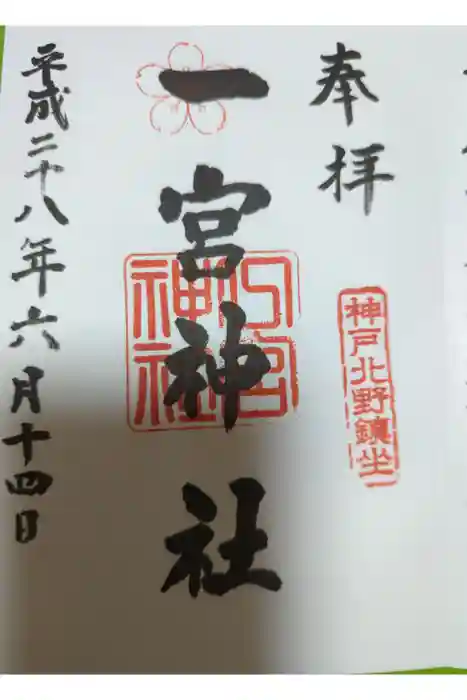 奉拝
神戸北野鎮坐
一宮神社
一宮神社
平成二十八年六月十四日